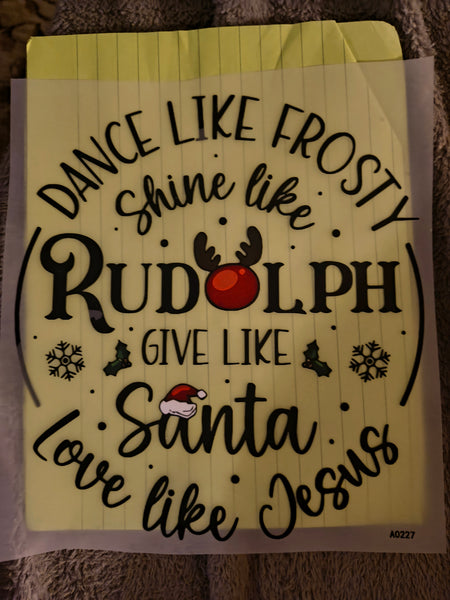 DANCE LIKE FROSTY
Shine like
RUDOLPH
GIVE LIKE
Santa
Love like Jesus
A0227